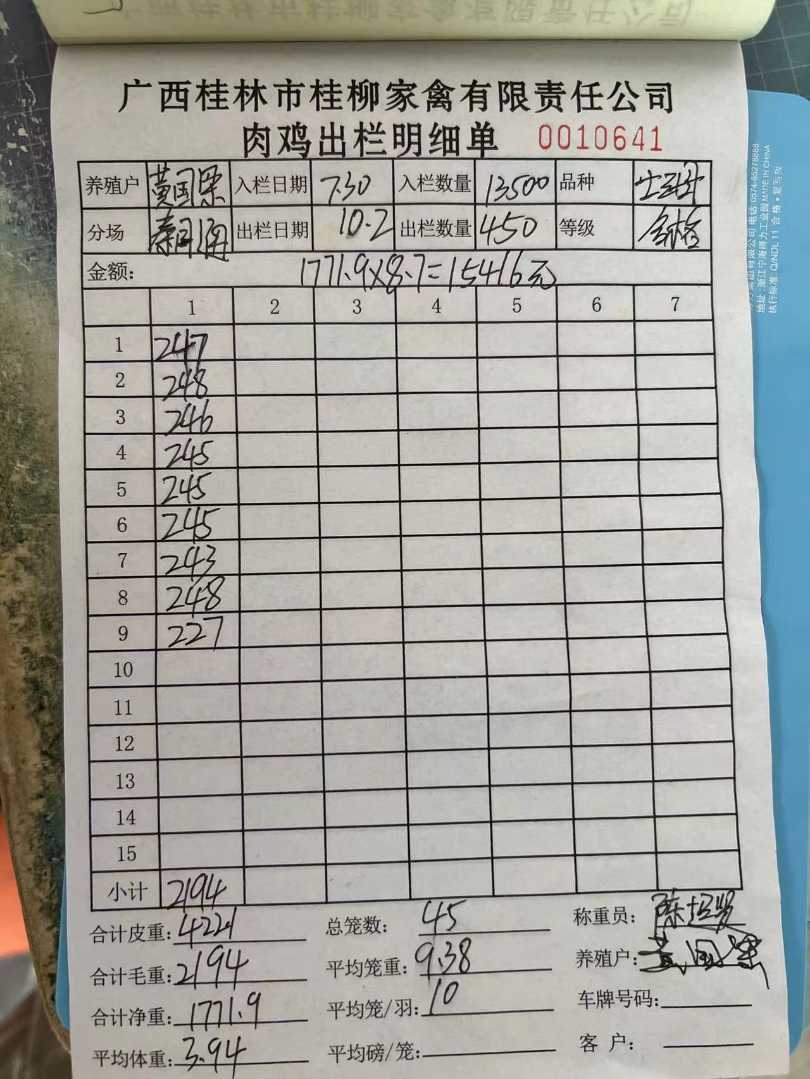 广西桂林市桂柳家禽有限责任公司
肉鸡出栏明细单 0010641
养殖户 黄国 入栏日期 7.30 入栏数量 13500 品种
分场 出栏日期 10.2 出栏数量 450 等级 合格
金额: 1771.9×8.7=15416元
1 2 3 4 5 6 7
1 247
2 248
3 246
4 245
5 245
6 245
7 243
8 248
9 227
10
11
12
13
14
15
小计 2194
合计皮重: 422.1 总笼数: 45 称重员: 陈
合计毛重: 2194 平均笼重: 9.38 养殖户: 黄国
合计净重: 1771.9 平均笼/羽: 10 车牌号码:
平均体重: 3.94 平均磅/笼: 客户: